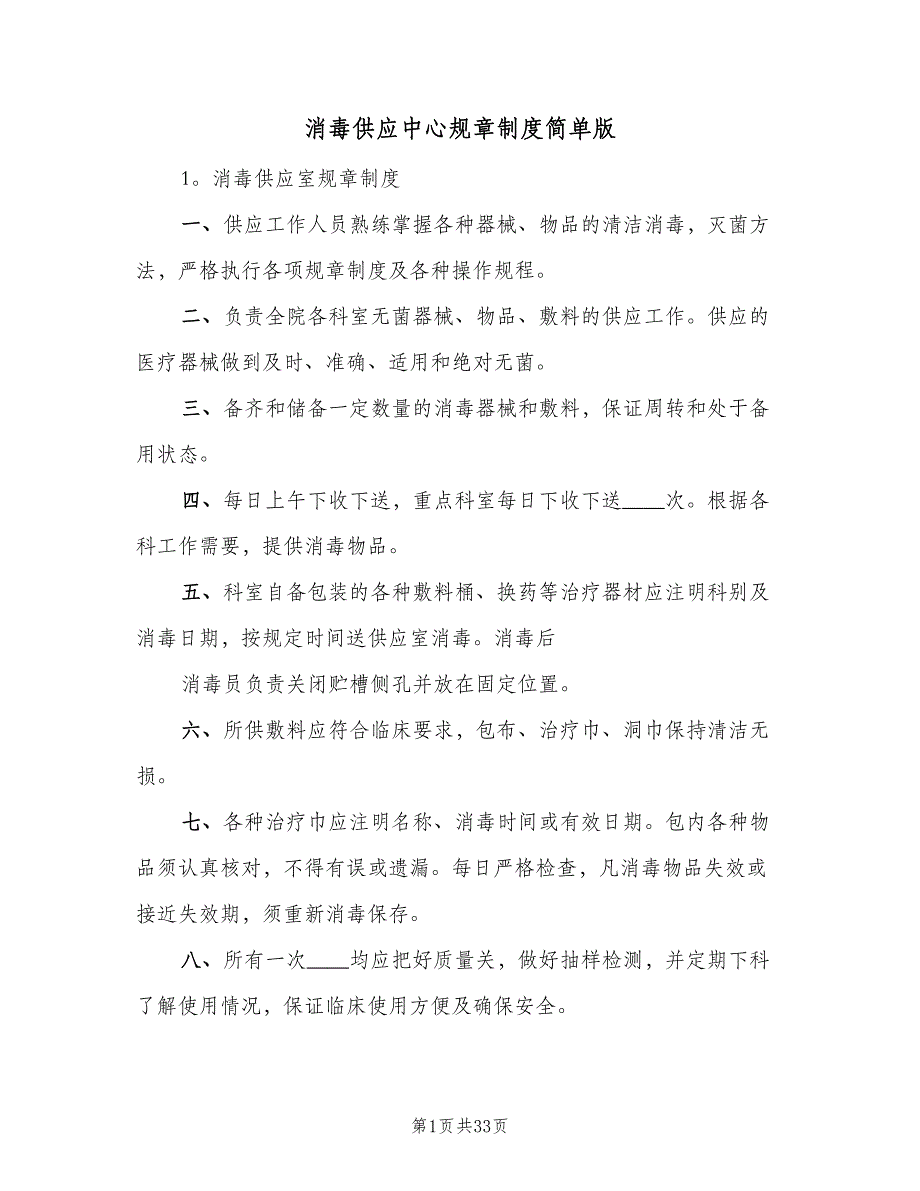 消毒供应中心规章制度简单版
1。消毒供应室规章制度
一、供应工作人员熟练掌握各种器械、物品的清洁消毒，灭菌方
法，严格执行各项规章制度及各种操作规程。
二、负责全院各科室无菌器械、物品、敷料的供应工作。供应的
医疗器械做到及时、准确、适用和绝对无菌。
三、备齐和储备一定数量的消毒器械和敷料，保证周转和处于备
用状态。
四、每日上午下收下送，重点科室每日下收下送____次。根据各
科工作需要，提供消毒物品。
五、科室自备包装的各种敷料桶、换药等治疗器材应注明科别及
消毒日期，按规定时间送供应室消毒。消毒后
消毒员负责关闭贮槽侧孔并放在固定位置。
六、所供敷料应符合临床要求，包布、治疗巾、洞巾保持清洁无
损。
七、各种治疗巾应注明名称、消毒时间或有效日期。包内各种物
品须认真核对，不得有误或遗漏。每日严格检查，凡消毒物品失效或
接近失效期，须重新消毒保存。
八、所有一次____均应把好质量关，做好抽样检测，并定期下科
了解使用情况，保证临床使用方便及确保安全。
第1页共33页